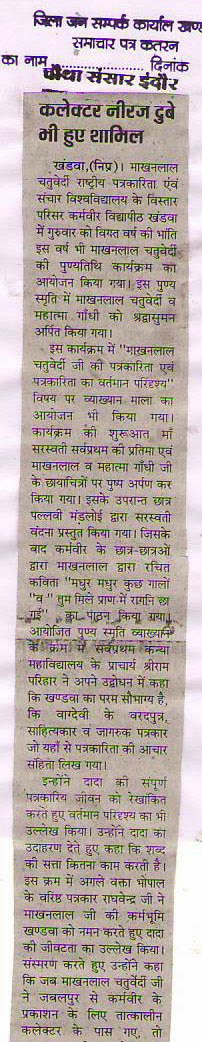 जिला जन सम्पर्क कार्याल खण्
समाचार पत्र कतरन
का नाम ........................ दिनांक
चौथा संसार इंदौर
कलेक्टर नीरज दुबे
भी हुए शामिल
खंडवा,(निप्र)। माखनलाल
चतुर्वेदी राष्ट्रीय पत्रकारिता एवं
संचार विश्वविद्यालय के विस्तार
परिसर कर्मवीर विद्यापीठ खंडवा
में गुरुवार को विगत वर्ष की भांति
इस वर्ष भी माखनलाल चतुर्वेदी
की पुण्यतिथि कार्यक्रम का
आयोजन किया गया। इस पुण्य
स्मृति में माखनलाल चतुर्वेदी व
महात्मा गाँधी को श्रद्वासुमन
अर्पित किया गया।
इस कार्यक्रम में ''माखनलाल
चतुर्वेदी जी की पत्रकारिता एवं
पत्रकारिता का वर्तमान परिदृश्य''
विषय पर व्याख्यान माला का
आयोजन भी किया गया।
कार्यक्रम की शुरूआत माँ
सरस्वती सर्वप्रथम की प्रतिमा एवं
माखनलाल व महात्मा गाँधी जी
के छायाचित्रों पर पुष्प अर्पण कर
किया गया। इसके उपरान्त छात्र
पल्लवी मंडलोई द्वारा सरस्वती
वंदना प्रस्तुत किया गया। जिसके
बाद कर्मवीर के छात्र-छात्रओं
द्वारा माखनलाल द्वारा रचित
कविता ''मधुर मधुर कुछ गालों
''व '' तुम मिले प्राण में रागनि छा
गई'' का पाठन किया गया।
आयोजित पुण्य स्मृति व्याख्यान
के क्रम में सर्वप्रथम कन्या
महाविद्यालय के प्राचार्य श्रीराम
परिहार ने अपने उद्बोधन में कहा
कि खण्डवा का परम सौभाग्य है,
कि वाग्देवी के वरदपुत्र,
साहित्यकार व जागरुक पत्रकार
जो यहाँ से पत्रकारिता की आचार
संहिता लिख गया।
इन्होंने दादा की संपूर्ण
पत्रकारिय जीवन को रेखांकित
करते हुए वर्तमान परिदृश्य का भी
उल्लेख किया। उन्होंने दादा का
उदाहरण देते हुए कहा कि शब्द
की सत्ता कितना काम करती है।
इस क्रम में अगले वक्ता भोपाल
के वरिष्ठ पत्रकार राघवेन्द्र जी ने
माखनलाल जी की कर्मभूमि
खण्डवा को नमन करते हुए दादा
की जीवटता का उल्लेख किया।
संस्मरण करते हुए उन्होंने कहा
कि जब माखनलाल चतुर्वेदी जी
ने जबलपुर से कर्मवीर के
प्रकाशन के लिए तात्कालीन
कलेक्टर के पास गए, तो